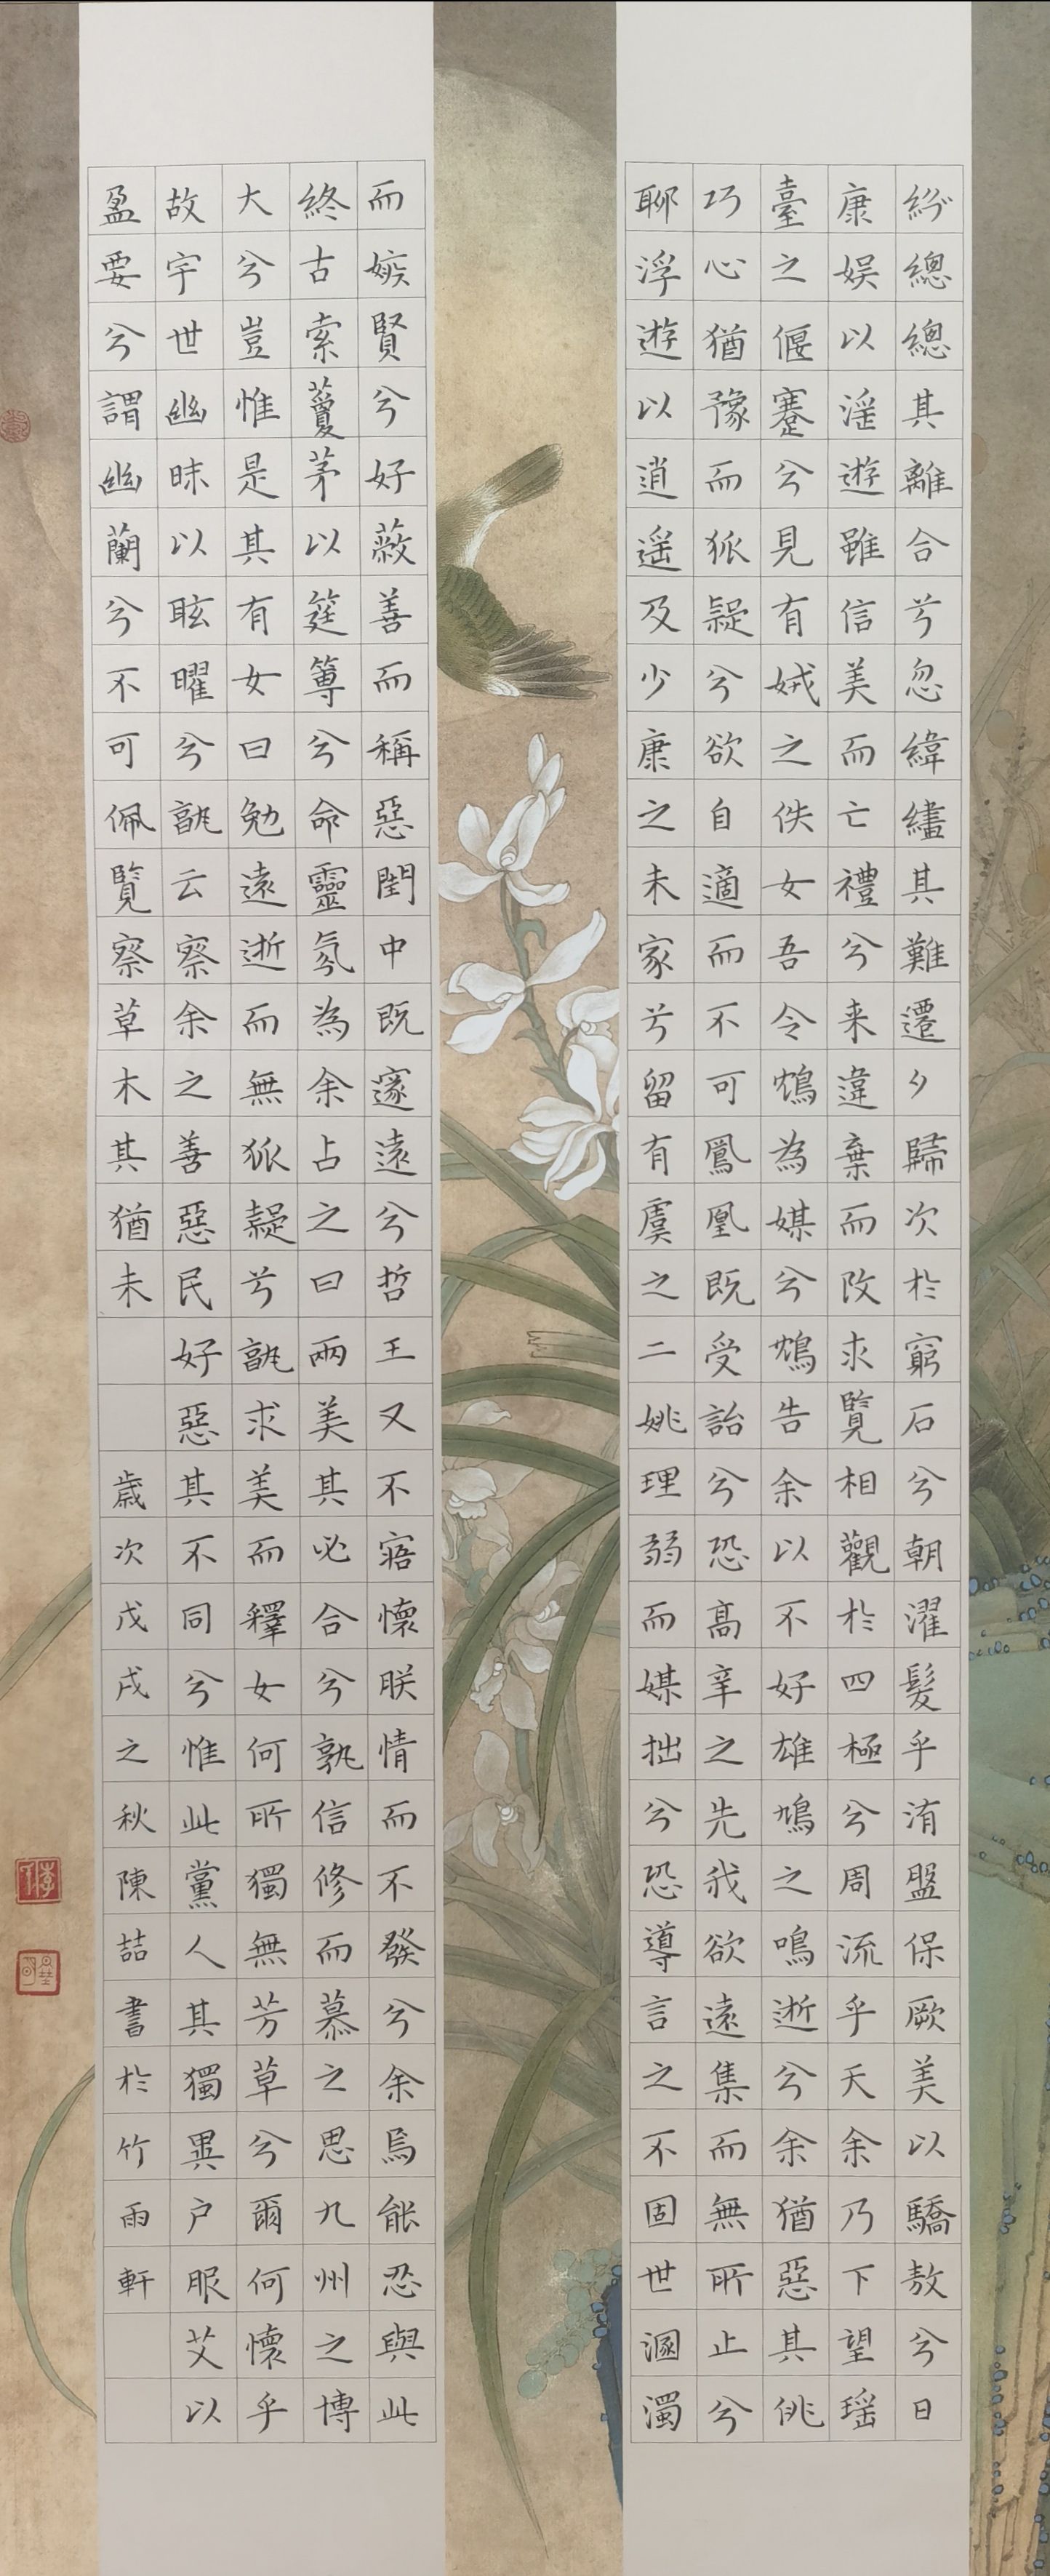 紛總總其離合兮忽緯繣其難遷夕歸次於窮石兮朝濯髮乎洧盤保厥美以驕敖兮日
康娛以淫遊雖信美而亡禮兮来違棄而改求覽相觀於四極兮周流乎天余乃下望瑶
臺之偃蹇兮見有娀之佚女吾令鴆為媒兮鴆告余以不好雄鳩之鳴逝兮余猶惡其佻
巧心猶豫而狐疑兮欲自適而不可鳳凰既受詒兮恐高辛之先我欲遠集而無所止兮
聊浮遊以逍遥及少康之未家兮留有虞之二姚理弱而媒拙兮恐導言之不固世溷濁
而嫉賢兮好蔽善而稱惡閨中既邃遠兮哲王又不寤懷朕情而不發兮余焉能忍與此
終古索藑茅以筳篿兮命靈氛為余占之曰兩美其必合兮孰信修而慕之思九州之博
大兮豈惟是其有女曰勉遠逝而無狐疑兮孰求美而釋女何所獨無芳草兮爾何懷乎
故宇世幽昧以眩曜兮孰云察余之善惡民好惡其不同兮惟此黨人其獨異户服艾以
盈要兮謂幽蘭兮不可佩覽察草木其猶未 歲次戊戌之秋陳喆書於竹雨軒